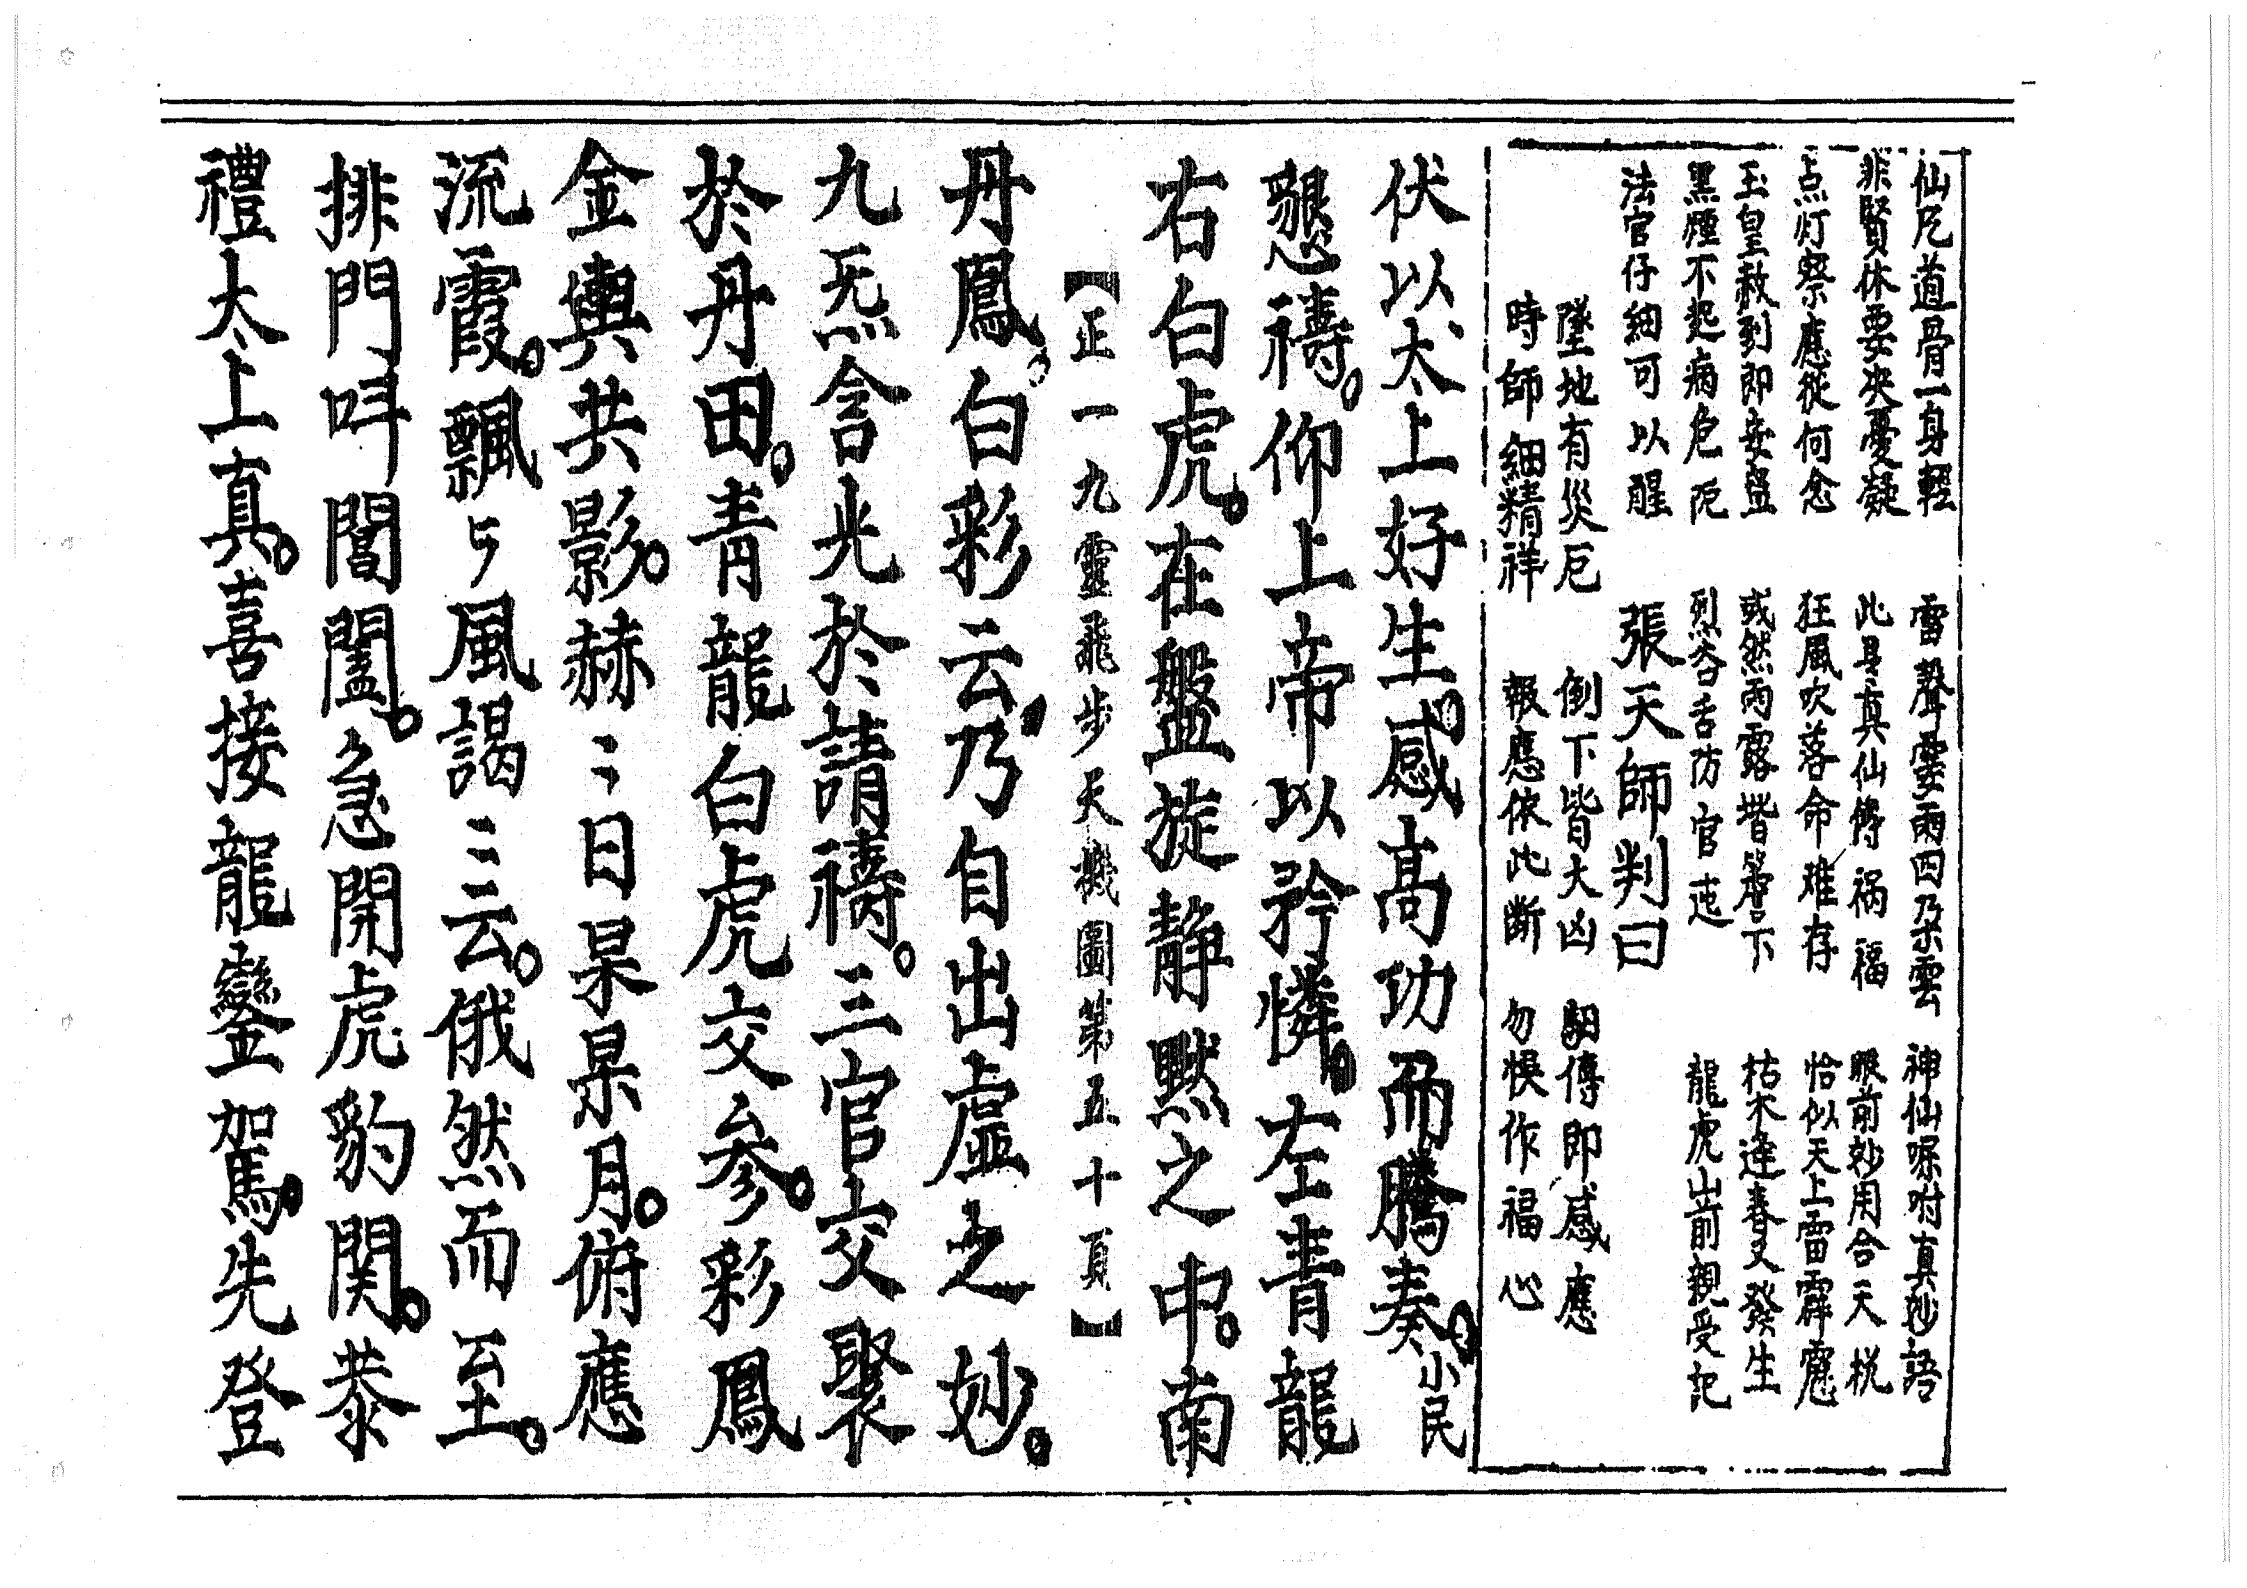 仙凡道骨一身輕 雷聲霎雨四朵雲 神仙嘱咐真妙語
非賢休要决憂疑 此是真仙傳祸福 眼前妙用合天机
点灯察應從何念 狂風吹落命难存 恰似天上雷霹靂
玉皇赦到即安寧 或然雨露堦簷下 枯木逢春又發生
黑煙不起病危阨 烈 舌防官 龍虎山前親受記
法官仔細可以醒 張天師判曰
墜地有災厄 倒下皆大凶 傳即感應
時師細精祥 報應依此断 勿悞作福心
伏以太上好生。感高功而騰奏。小民
懇禱。仰上帝以矜憐。左青龍
右白虎。在盤旋静默之中。南
【正一九靈飛步天機圖第五十頁】
丹鳳。白彩云。乃自出虛之妙。
九炁含光於請禱。三官交聚
於丹田。青龍白虎交参。彩鳳
金輿共影。赫〻日杲杲月。俯應
流霞。飄丂風謁三云。俄然而至。
排門叫閶闔。急開虎豹関。恭
禮太上真。喜接龍鑾駕。先登